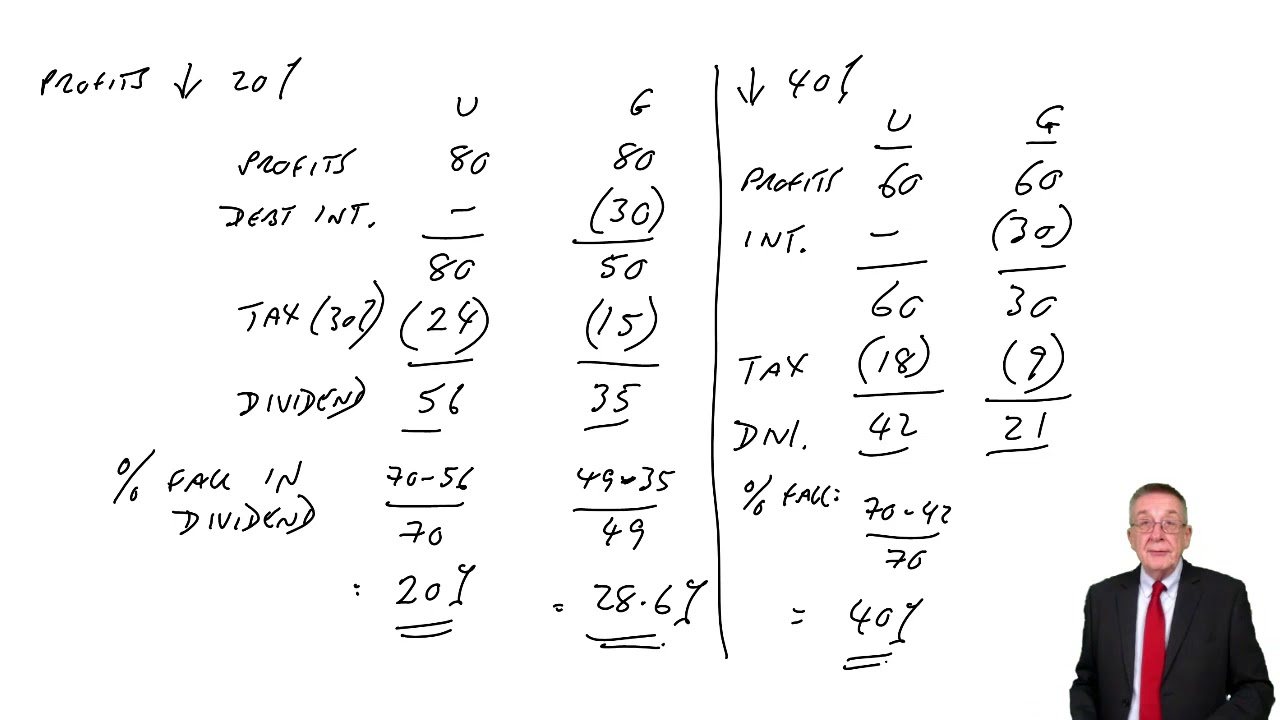 PROFITS ↓ 20%
U G
PROFITS 80 80
DEBT INT. – (30)
80 50
TAX (30%) (24) (15)
DIVIDEND 56 35
% FALL IN DIVIDEND
70-56 49-35
70 49
= 20% = 28.6%
↓ 40%
U G
PROFITS 60 60
INT. – (30)
60 30
TAX (18) (9)
DIVI. 42 21
% FALL: 70-42
70
= 40%